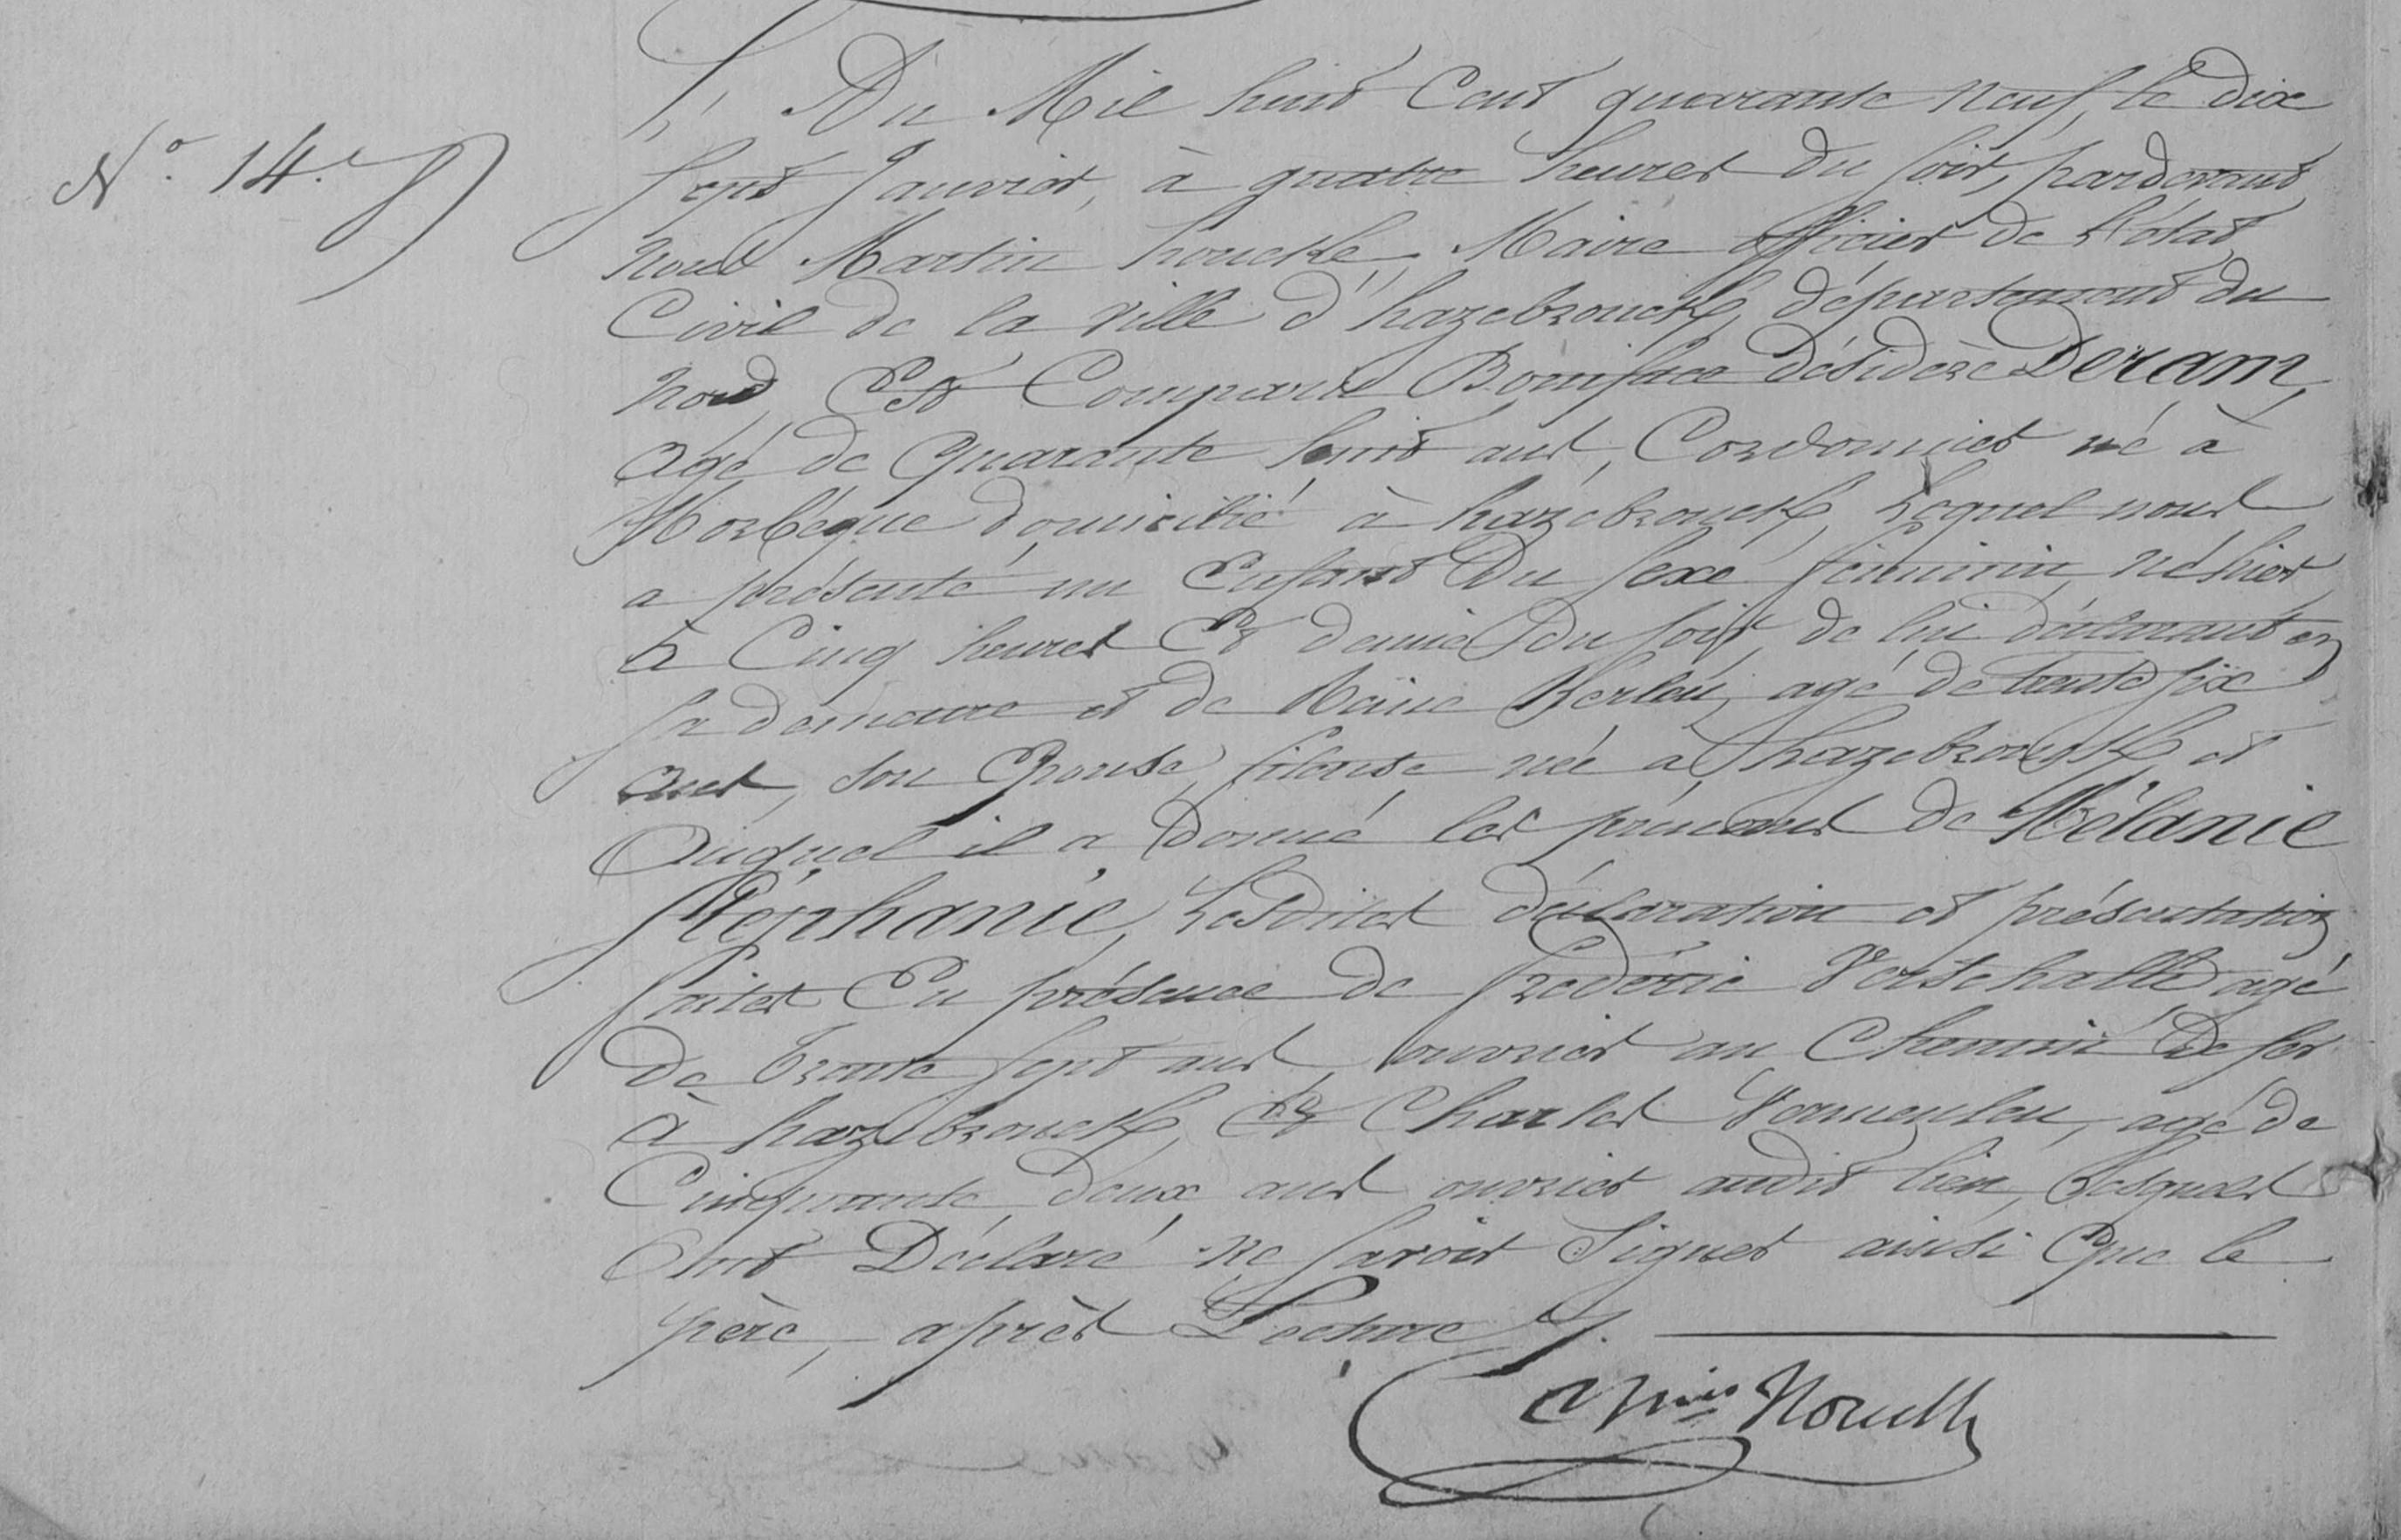 N.° 14.e
L'An Mil huit Cent quarante neuf, le dix
Sept Janvier, à quatre heures du soir, pardevant
nous Martin houcke, Maire officier de l'état
Civil de la ville d'hazebrouck, département du
nord, Est Comparu Boniface Désidère Deram,
agé de quarante huit ans, Cordonnier né à
Morbecque domicilié à hazebrouck, Lequel nous
a présenté un Enfant du sexe féminin, né hier
à Cinq heures Et demie du soir, de lui déclarant en
sa demeure et de agé de trente six
ans, son Epouse, fileuse, née à hazebrouck et
Auquel il a donné les prénoms de Mélanie
Stéphanie, Lesdites déclaration et présentation
faites En présence de frédéric agé
de trente sept ans, ouvrier au Chemin de fer
à hazebrouck, Et Charles Vermeulen, agé de
Cinquante deux ans ouvrier audit lieu, Lesquels
Ont Déclaré ne savoir Signer ainsi Que le
père, après Lecture